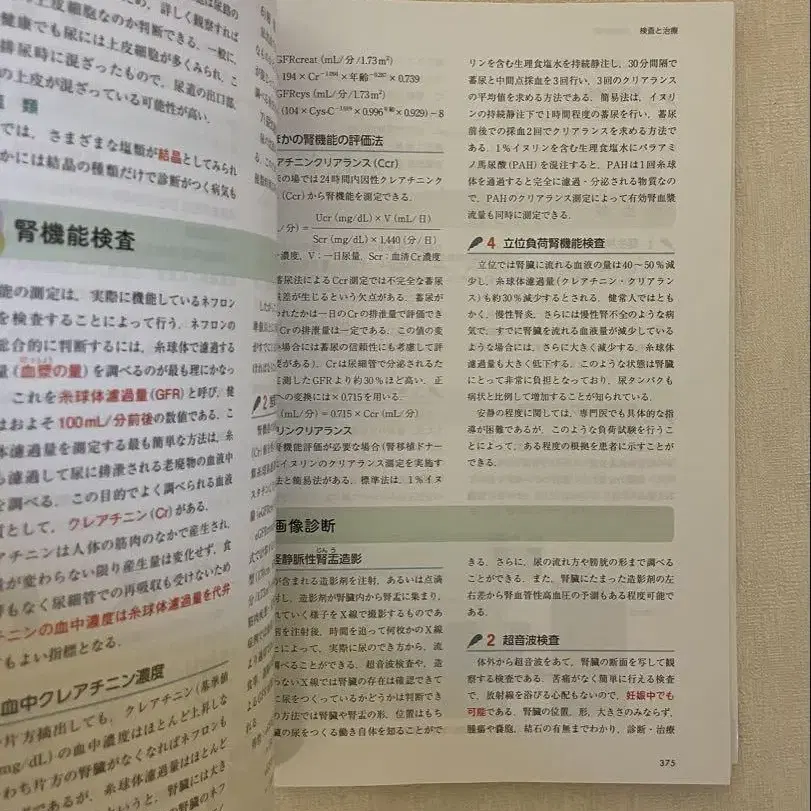 上皮細胞なのか判断できる．一般に，
健康でも尿には上皮細胞が多くみられ，こ
排尿時に混ざったもので，尿道の出口部，
の上皮が混ざっている可能性が高い．
では，さまざまな塩類が結晶としてみられ
かには結晶の種類だけで診断がつく病気も
腎機能検査
能の測定は，実際に機能しているネフロン
を検査することによって行う．ネフロンの
総合的に判断するには，糸球体で濾過する
量（血漿の量）を調べるのが最も理にかなっ
これを糸球体濾過量（GFR）と呼び，健
はおよそ100mL/分前後の数値である．こ
体濾過量を測定する最も簡単な方法は，糸
も濾過して尿に排泄される老廃物の血液中
を調べる．この目的でよく調べられる血液
質として，クレアチニン（Cr）がある．
アチニンは人体の筋肉のなかで産生され，
量が変わらない限り産生量は変化せず，食
響もなく尿細管での再吸収も受けないため
チニンの血中濃度は糸球体濾過量を代弁
てもよい指標となる．
血中クレアチニン濃度
片方摘出しても，クレアチニン（基準値
mg/dL）の血中濃度はほとんど上昇しな
わち片方の腎臓がなくなればネフロンも
であるが，糸球体濾過量はほとんど
というと，腎臓には大き
検査と治療
GFRcreat（mL/分/1.73m²）
194×Cr⁻¹·⁰⁹⁴×年齢⁻⁰·²⁸⁷×0.739
GFRcys（mL/分/1.73m²）
(104×Cys-C⁻¹·⁰¹⁹×0.996年齢×0.929)－8
ほかの腎機能の評価法
アチニンクリアランス（Ccr）
の場では24時間内因性クレアチニンク
（Ccr）から腎機能を測定できる．
/分）＝ Ucr（mg/dL）×V（mL/日）
Scr（mg/dL）×1,440（分/日）
濃度，V：一日尿量，Scr：血清Cr濃度
蓄尿法によるCcr測定では不完全な蓄尿
誤差が生じるという欠点がある．蓄尿が
われたかは一日のCrの排泄量で評価でき
Crの排泄量は一定である．この値の変
場合には蓄尿の信頼性にも考慮して評
要がある）．Crは尿細管で分泌されるた
実測したGFRより約30％ほど高い．正
への変換には×0.715を用いる．
（mL/分）＝0.715×Ccr（mL/分）
リンクリアランス
腎機能評価が必要な場合（腎移植ドナー
はイヌリンのクリアランス測定を実施す
法と簡易法がある．標準法は，1％イヌ
リンを含む生理食塩水を持続静注し，30分間隔で
蓄尿と中間点採血を3回行い，3回のクリアランス
の平均値を求める方法である．簡易法は，イヌリ
ンの持続静注下で1時間程度の蓄尿を行い，蓄尿
前後での採血2回でクリアランスを求める方法で
ある．1％イヌリンを含む生理食塩水にパラアミ
ノ馬尿酸（PAH）を混注すると，PAHは1回糸球
体を通過すると完全に濾過・分泌される物質なの
で，PAHのクリアランス測定によって有効腎血漿
流量も同時に測定できる．
4 立位負荷腎機能検査
立位では腎臓に流れる血液の量は40～50％減
少し，糸球体濾過量（クレアチニン・クリアラン
ス）も約30％減少するとされる．健常人ではとも
かく，慢性腎炎，さらには慢性腎不全のような病
気で，すでに腎臓を流れる血液量が減少している
ような場合には，さらに大きく減少する．糸球体
濾過量も大きく低下する．このような状態は腎臓
にとって非常に負担となっており，尿タンパクも
病状と比例して増加することが知られている．
安静の程度に関しては，専門医でも具体的な指
導が困難であるが，このような負荷試験を行うこ
とによって，ある程度の根拠を患者に示すことが
できる．
画像診断
経静脈性腎盂造影
が含まれる造影剤を注射，あるいは点滴
射し，造影剤が腎臓内から腎盂に集まり，
れていく様子をX線で撮影するものであ
剤を注射後，時間を追って何枚かのX線
によって，実際に尿のでき方から，流
べることができる．超音波検査や，造
ないX線では腎臓の存在は確認できて
に尿をつくっているかどうかは判断でき
の方法では腎臓や腎盂の形，位置はもち
臓の尿をつくる働き自体を知ることがで
きる．さらに，尿の流れ方や膀胱の形まで調べる
ことができる．また，腎臓にたまった造影剤の左
右差から腎血管性高血圧の予測もある程度可能で
ある．
2 超音波検査
体外から超音波をあて，腎臓の断面を写して観
察する検査である．苦痛がなく簡単に行える検査
で，放射線を浴びる心配もないので，妊娠中でも
可能である．腎臓の位置，形，大きさのみならず，
腫瘍や嚢胞，結石の有無までわかり，診断・治療
375